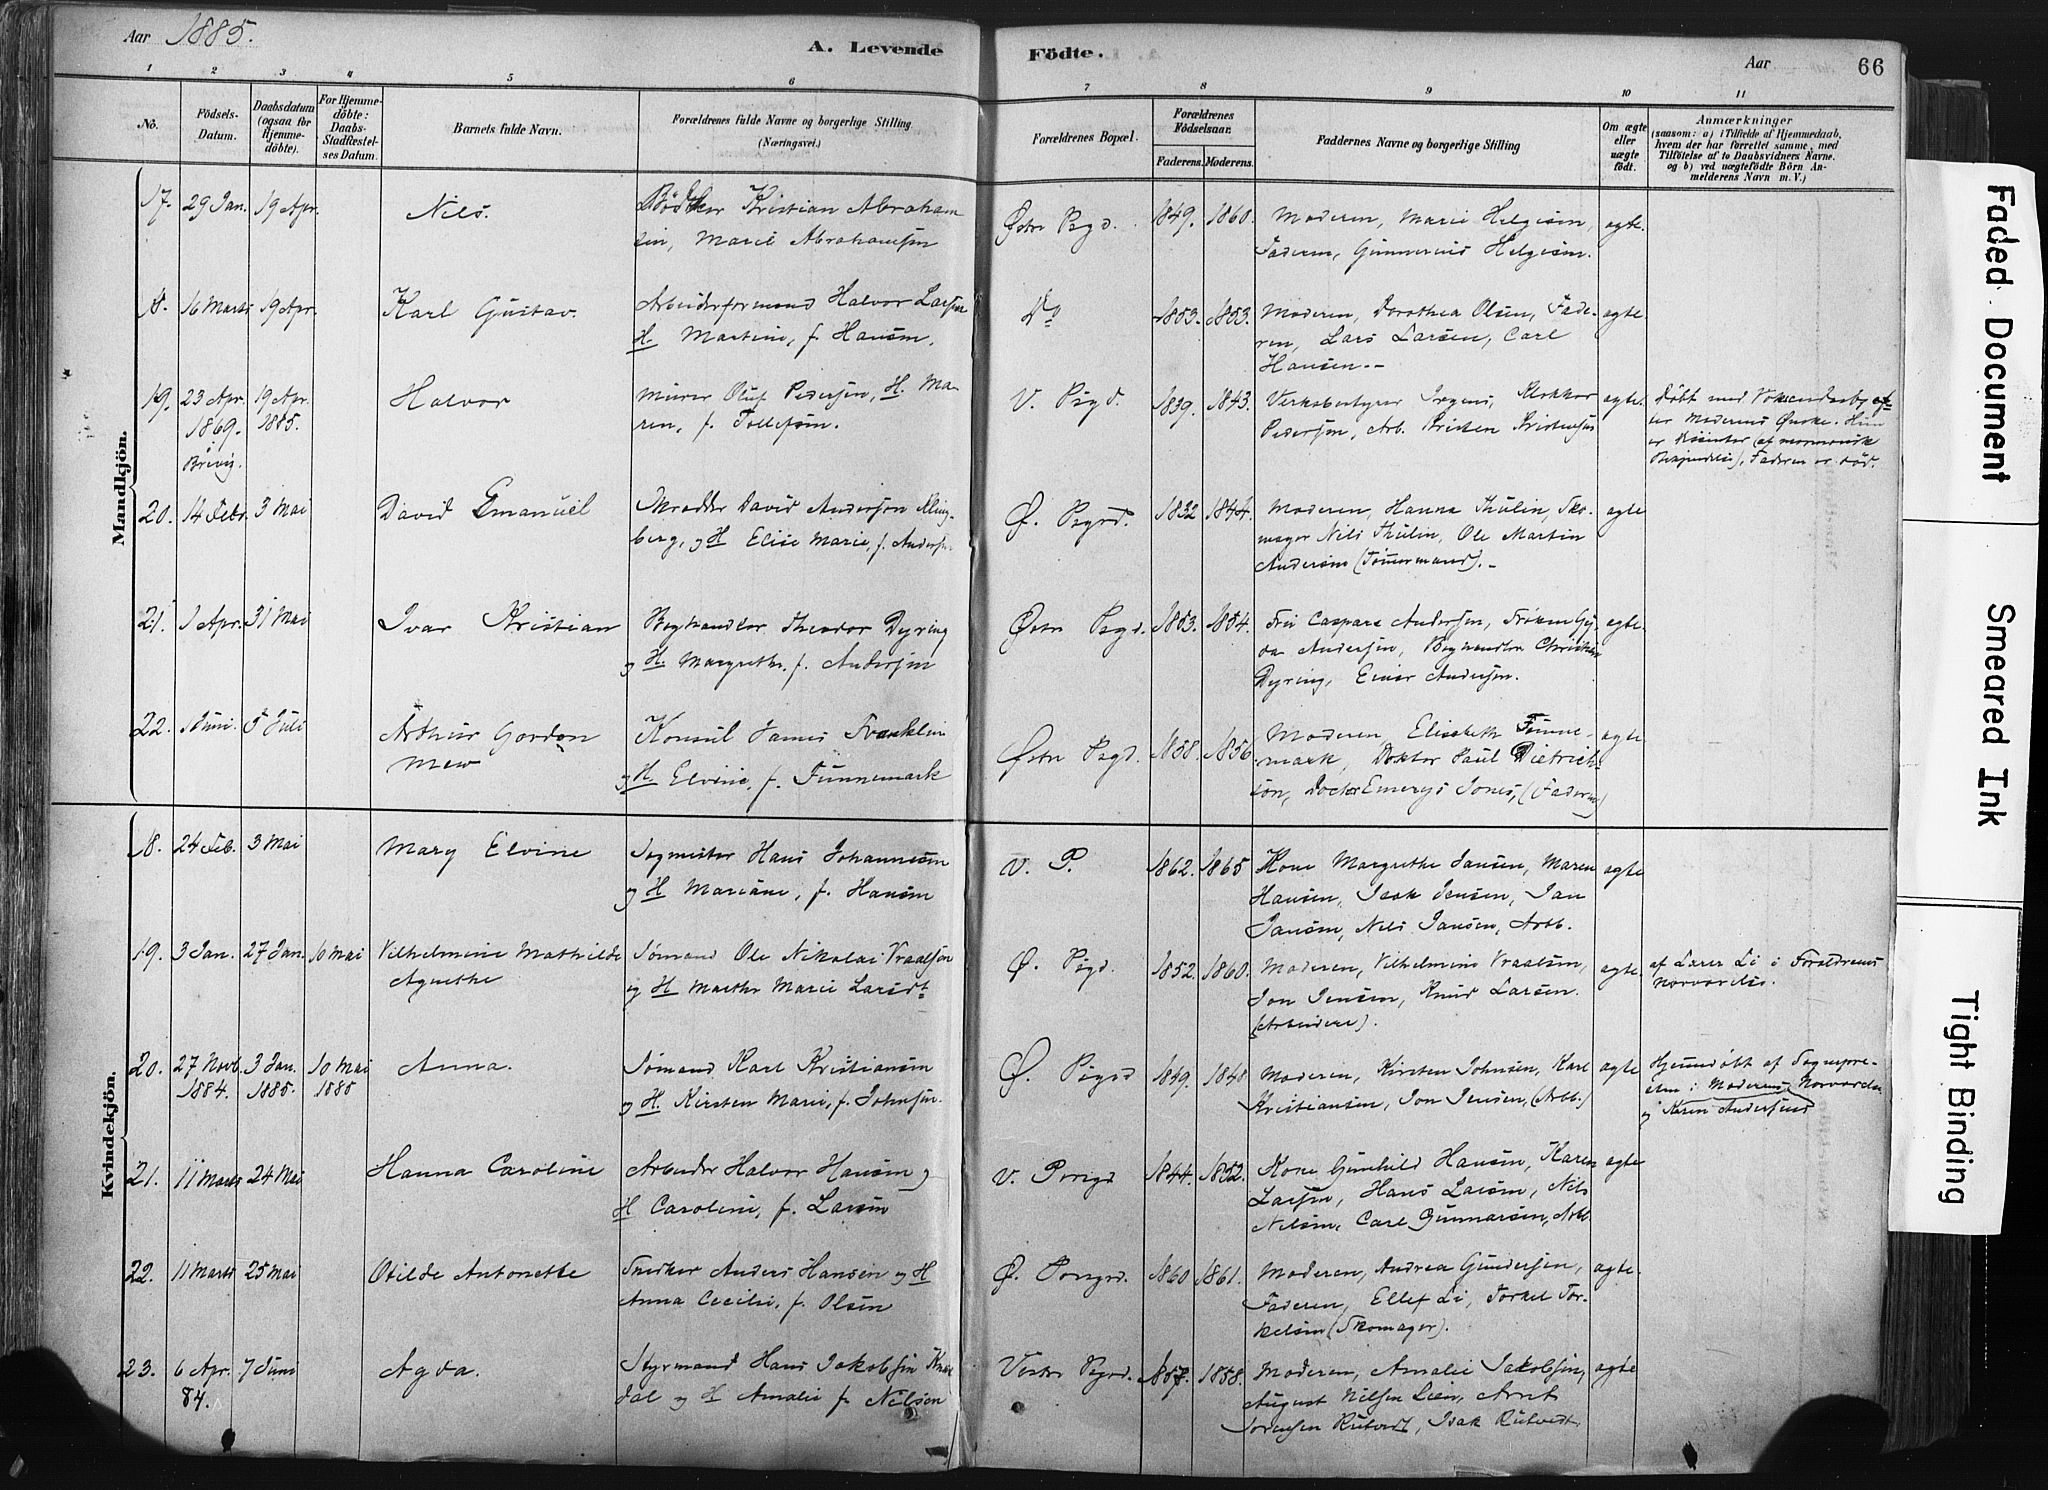 Aar 1885.
A. Levende
Födte.
Aar
66
1 2 3 4 5 6 7 8 9 10 11
No.
Födsels-
Datum.
Daabsdatum
(ogsaa for
Hjemme-
döbte).
For Hjemme-
döbte:
Daabs-
Stadfæstel-
ses Datum.
Barnets fulde Navn.
Forældrenes fulde Navne og borgerlige Stilling
(Næringsvei.)
Forældrenes Bopæl.
Forældrenes
Födselsaar.
Faderens. Moderens.
Faddernes Navne og borgerlige Stilling
Om ægte
eller
uægte
födt.
Anmærkninger
(saasom: a) i Tilfælde af Hjemmedaab,
hvem der har forrettet samme, med
Tilföielse af to Daabsvidners Navne.
og b) ved uægtefödte Börn An-
melderens Navn m. V.)
Mandkjön.
17. 29 Jan. 19 Apr. Nils. Bødker Kristian Abraham
sen, Marie Abrahamsen
Østre Psgd. 1849. 1860. Moderen, Marie Helgesen,
Faderen, Gunnerius Helgesen.
ægte.
18. 16 Marts 19 Apr. Karl Gustav. Arbeiderformand Halvor Larsen
H. Martine, f. Hansen.
Do 1853. 1853. Moderen, Dorothea Olsen, Fade-
ren, Lars Larsen, Carl
Hansen.-
ægte
19. 23 Apr. 1869. Brevig. 19 Apr. 1885. Halvor Murer Oluf Pedersen, H. Ma-
ren, f. Tollefsen.
V. Psgd. 1839. 1843. Verksbestyrer Irgens, Klokker
Pedersen, Arb. Kristen Kristensen
ægte. Døbt med Voksendaab ef-
ter Moderens Ønske. Hun
er Dissenter (af mormonsk
Bekjendelse), Faderen er død.
20. 14 Febr. 3 Mai David Emanuel Skrædder David Andersen Kling-
berg, og H Elise Marie, f. Andersen
Ø. Psgrd. 1832 1844. Moderen, Hanna Thulin, Sko-
mager Nils Thulin, Ole Martin
Andersen (Tømermand).-
ægte
21. 1 Apr. 31 Mai Ivar Kristian Boghandler Theodor Dyring
og H. Margrethe, f. Andersen
Østre Psgd. 1853. 1854. Fru Caspara Andersen, Frøken Gy-
da Andersen, Boghandler Christian
Dyring, Einar Andersen.
ægte.
22. Juni. 5 Juli Arthur Gordon
Mew
Konsul James Franklin
og H. Elvine, f. Funnemark
Østre Psgd. 1858. 1856. Moderen, Elisabeth Funne-
mark, Doktor Paul Dietrich-
son, Doctor Emerys Jones, (Faderen)
ægte
Kvindekjön.
18. 24 Feb. 3 Mai Mary Elvine Sagmester Hans Johannesen
og H Mariane, f. Hansen
V. P. 1862. 1865 Kone Margrethe Jansen, Maren
Hansen, Isak Jensen, Jan
Jansen, Nils Jansen, Arbb.
ægte
19. 3 Jan. 27 Jan. 10 Mai Vilhelmine Mathilde
Agnethe
Sømand Ole Nikolai Vraalsen
og H Marthe Marie Larsdt
Ø. Psgd. 1852. 1860. Moderen, Vilhelmine Vraalsen,
Jon Jensen, Knud Larsen.
(Arbeidere).
ægte. af Lærer Li i Forældrenes
Nærværelse.
20. 27 Novb. 1884. 3 Jan. 1885. 10 Mai 1885 Anna. Sømand Karl Kristiansen
og H. Kirsten Marie, f. Johnsen.
Ø. Psgrd 1849. 1848 Moderen, Kirsten Johnsen, Karl
Kristiansen, Jon Jensen, (Arbb.)
ægte Hjemdøbt af Sognepræ-
sten i Moderens Nærværelse
og Karen Andersens
21. 11 Marts 24 Mai Hanna Caroline Arbeider Halvor Hansen og
H Caroline, f. Larsen
V. Porsgd 1844. 1852. Kone Gunhild Hansen, Karen
Larsen, Hans Larsen, Nils
Nilsen, Carl Gunnarsen, Arbb.
ægte
22. 11 Marts 25 Mai Otilde Antonette Snedker Anders Hansen og H
Anna Cecilie, f. Olsen
Ø. Porsgrd. 1860 1861. Moderen, Andrea Gundersen,
Faderen, Ellef Li, Torkel Tor-
kelsen (Skomager).
ægte.
23. 6 Apr. 84. 7 Juni Agda. Styrmand Hans Jakobsen
dal og H Amalie f. Nilsen
Vestre Psgrd. 1857. 1858. Moderen, Amalie Jakobsen,
August Nilsen Leen, Arnt
Sørensen Rutvedt, Isak Rutvedt.
ægte
Faded Document
Smeared Ink
Tight Binding